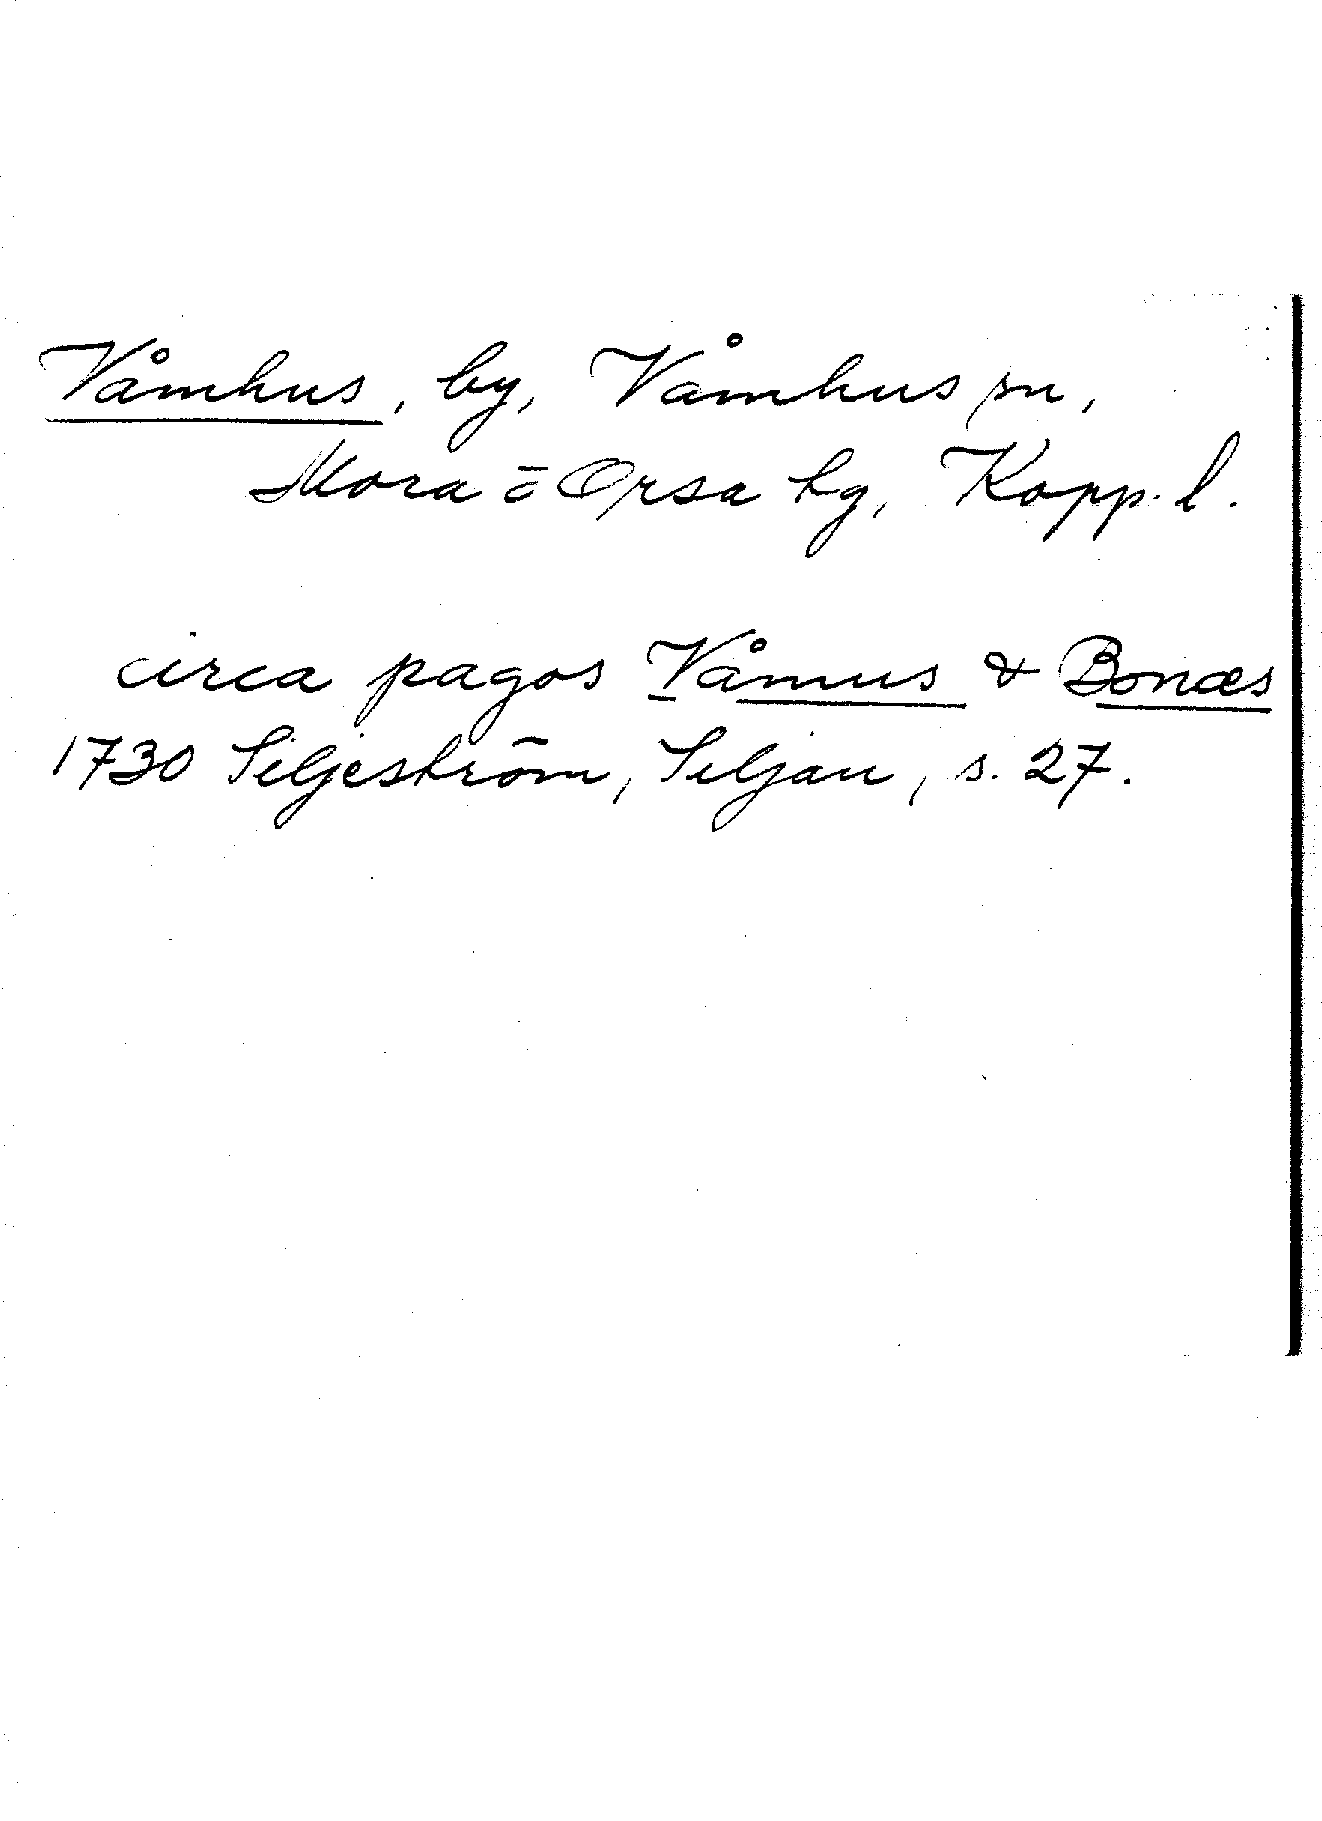 Våmhus, by, Våmhus sn,
Mora o Orsa tg, Kopp. l.
circa pagos Våmus & Bonæs
1730 Siljeström, Siljan, s. 27.